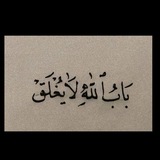 بَابُ ٱللَّٰهِ لَا يُغْلَقُ